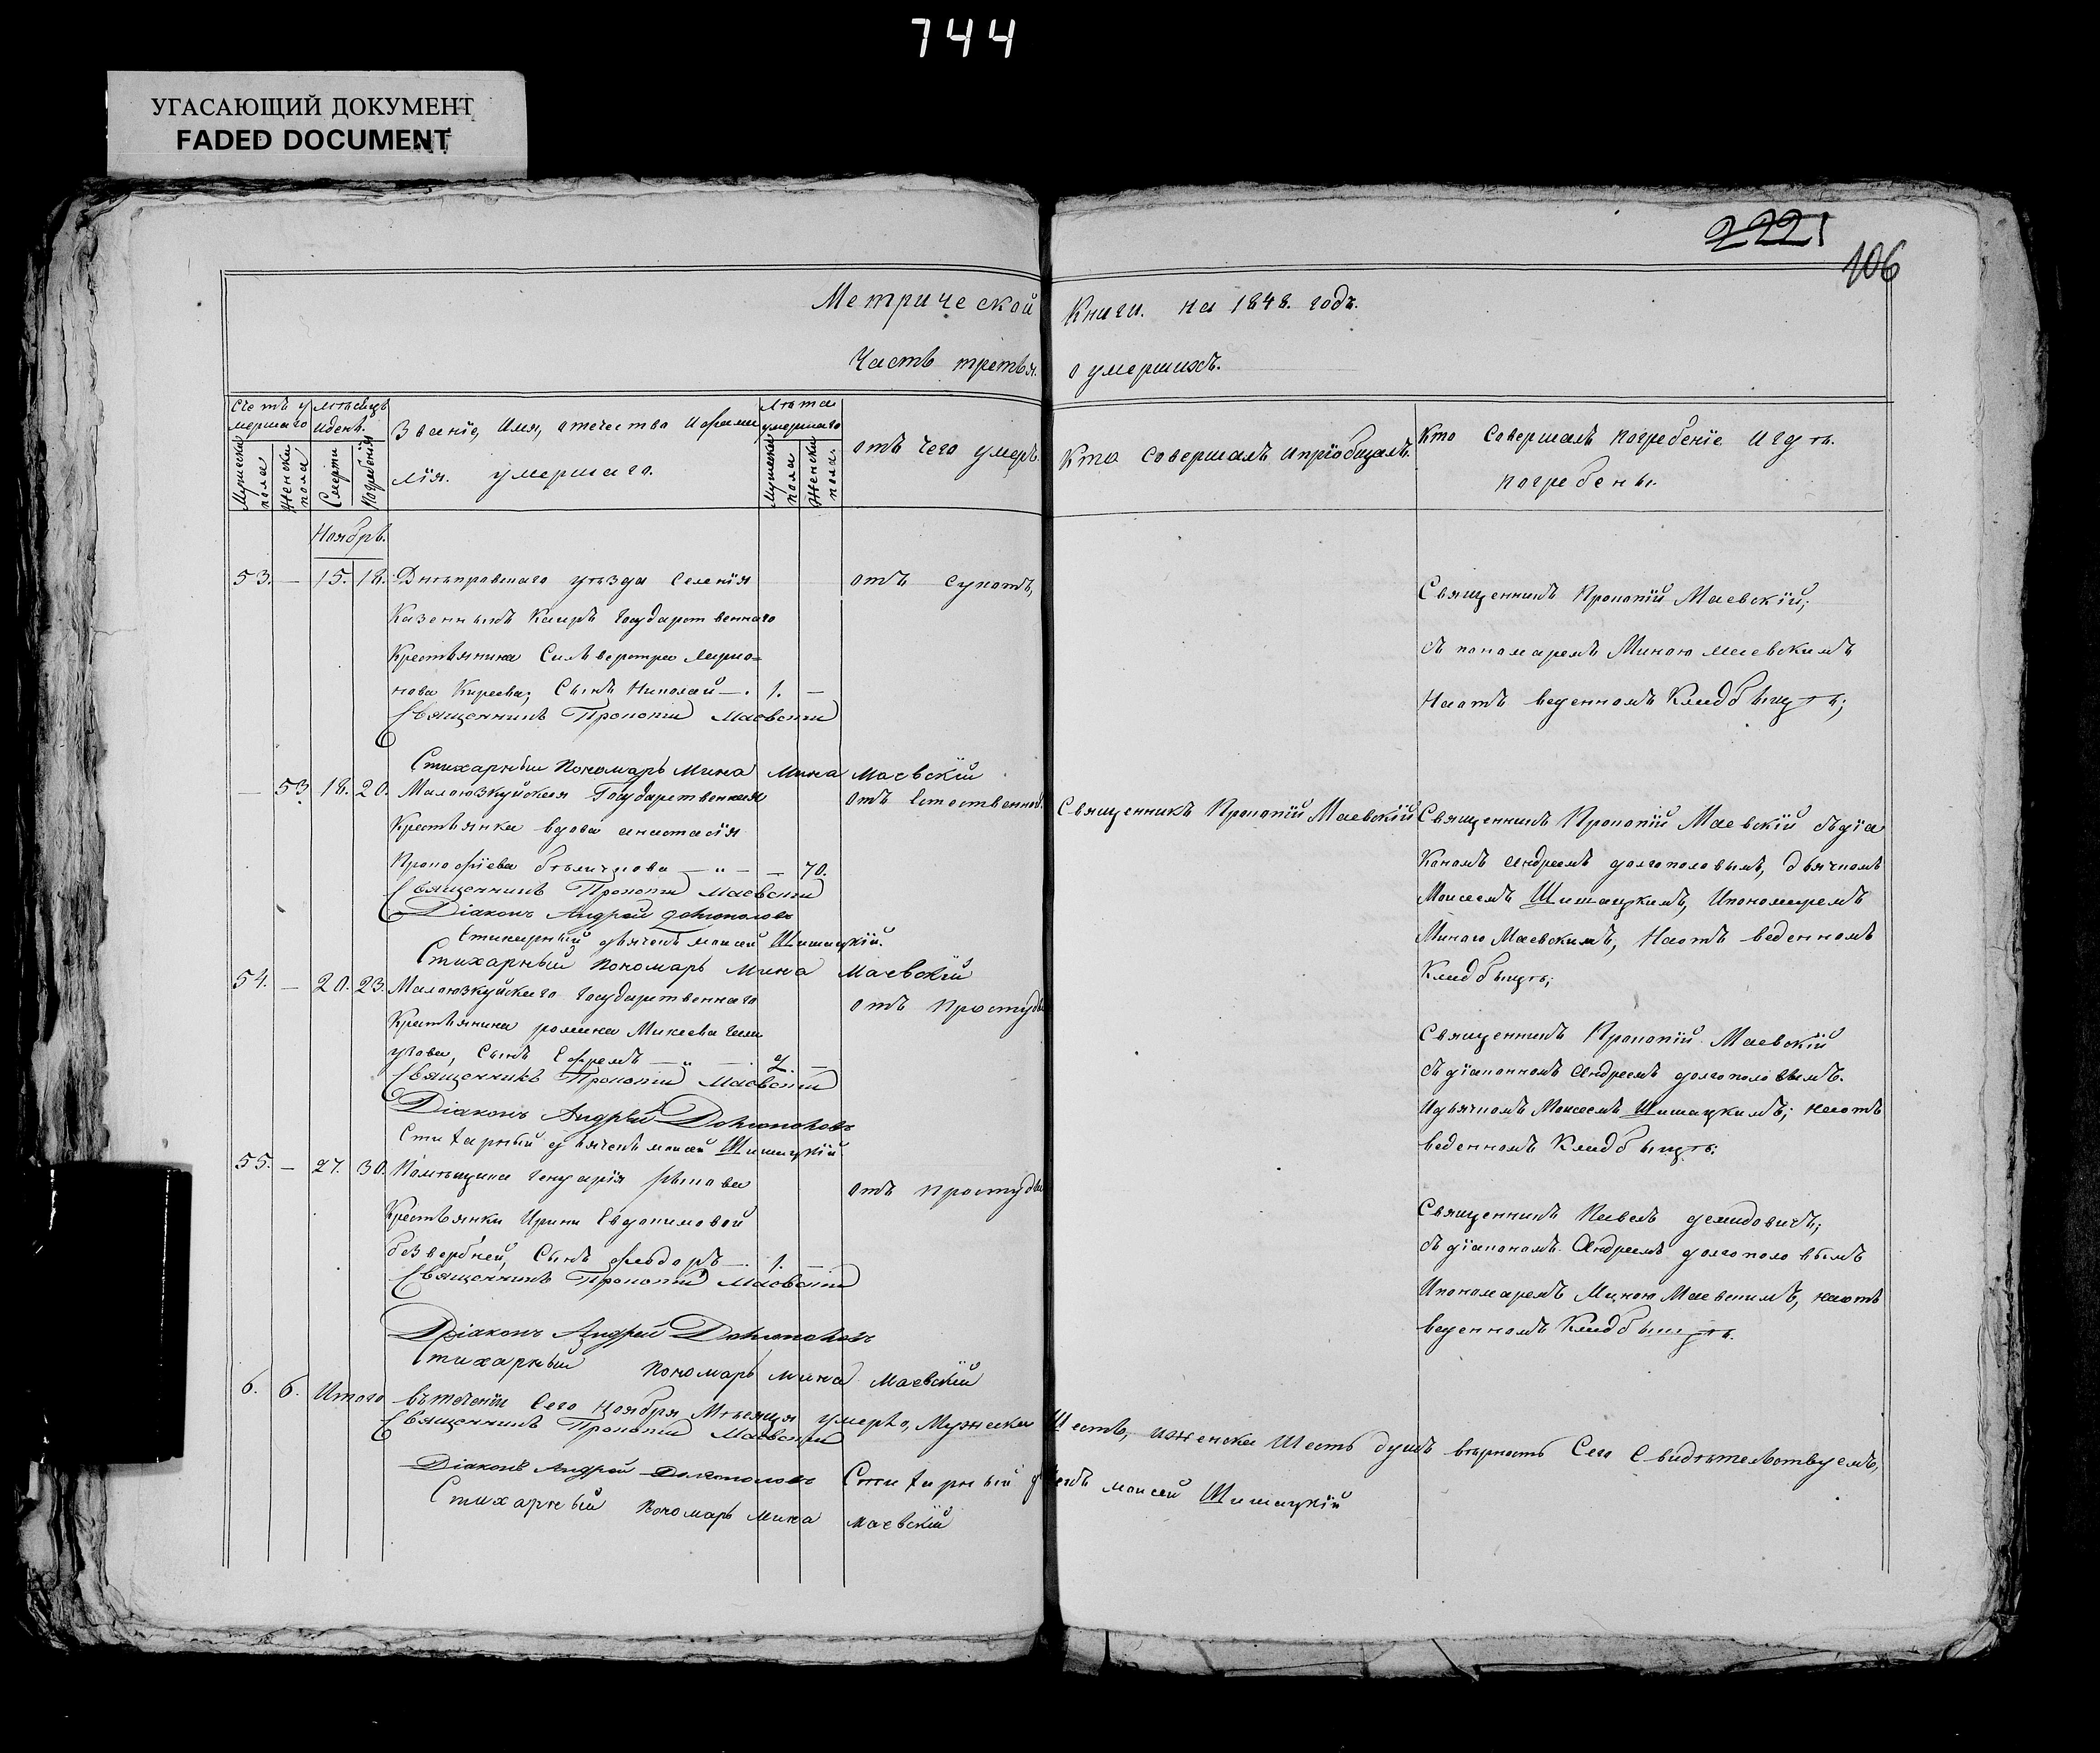 744
УГАСАЮЩИЙ ДОКУМЕНТ
FADED DOCUMENT
2221
106
Метрической Книги. на 1848. годъ.
Часть третья. о умершихъ.
Счетъ умершаго
Мужеска пола
Женска пола
Мѣсяцъ и день.
Смерти
Погребенія
Званіе, Имя, отечество и фамилія. умершаго.
Лѣта умершаго
Мужеска пола
Женска пола.
отъ чего умеръ
Кто совершалъ и пріобщалъ.
Кто совершалъ погребеніе и гдѣ погребены.
Ноябрь.
53. — 15. 18. Днѣпровскаго уѣзда селенія
отъ сухотъ,
Казенныхъ Каиръ Государственнаго
Крестьянина Сильверстра Миро=
нова Киреева; Сынъ Николай —. 1. —
Священникъ Прокопій Маевскій
Стихарный Пономарь Мина Мина Маевскій
Священникъ Прокопій Маевскій;
съ пономаремъ Миною Маевскимъ
На отъ веденномъ Кладбыщѣ;
— 53 18. 20. Малокаирская Государственная
отъ Естественной.
Крестьянка вдова анастасія
Прокофіева — „ — — 70.
Священникъ Прокопій Маевскій
Діаконъ Андрей Долгополовъ
Стихарный дьячекъ моисей Шишацкій.
Стихарный Пономарь Мина Маевскій
Священникъ Прокопій Маевскій
Священникъ Прокопій Маевскій съ діа
Кономъ Андреемъ долгополовымъ, дьячкомъ
Моисеемъ Шишацкимъ, И пономаремъ
Миною Маевскимъ, На отъ веденномъ
Кладбыщѣ;
54. — 20. 23. Государственнаго
отъ Простуды
Крестьянина романа Микеева
Сынъ Ефремъ — „ — . 2. —
Священникъ Прокопій Маевскій
Діаконъ Андрей Долгополовъ
Стихарный дьячекъ моисей Шишацкій
Священникъ Прокопій Маевскій
съ діакономъ Андреемъ долгополовымъ.
И дьячкомъ Моисеемъ Шишацкимъ; на отъ
веденномъ Кладбыщѣ.
55. — 27. 30. Помѣщика
отъ простуды
Крестьянки Ирины Евдокимовой
безвербней, Сынъ феодоръ —. 1. —
Священникъ Прокопій Маевскій
Діаконъ Андрей Долгополовъ
Стихарный Пономарь Мина Маевскій
Священникъ Павелъ демидовичъ;
съ діакономъ Андреемъ долгополовымъ
И пономаремъ Миною Маевскимъ, на отъ
веденномъ Кладбыщѣ.
6. 6. Итого въ теченіи Сего Ноября Мѣсяца умерло, Мужеска Шесть, и женска Шесть душъ вѣрность Сего Свидѣтельствуемъ,
Священникъ Прокопій Маевскій
Діаконъ Андрей Долгополовъ Стихарный дьячекъ моисей Шишацкій
Стихарный Пономарь Мина Маевскій